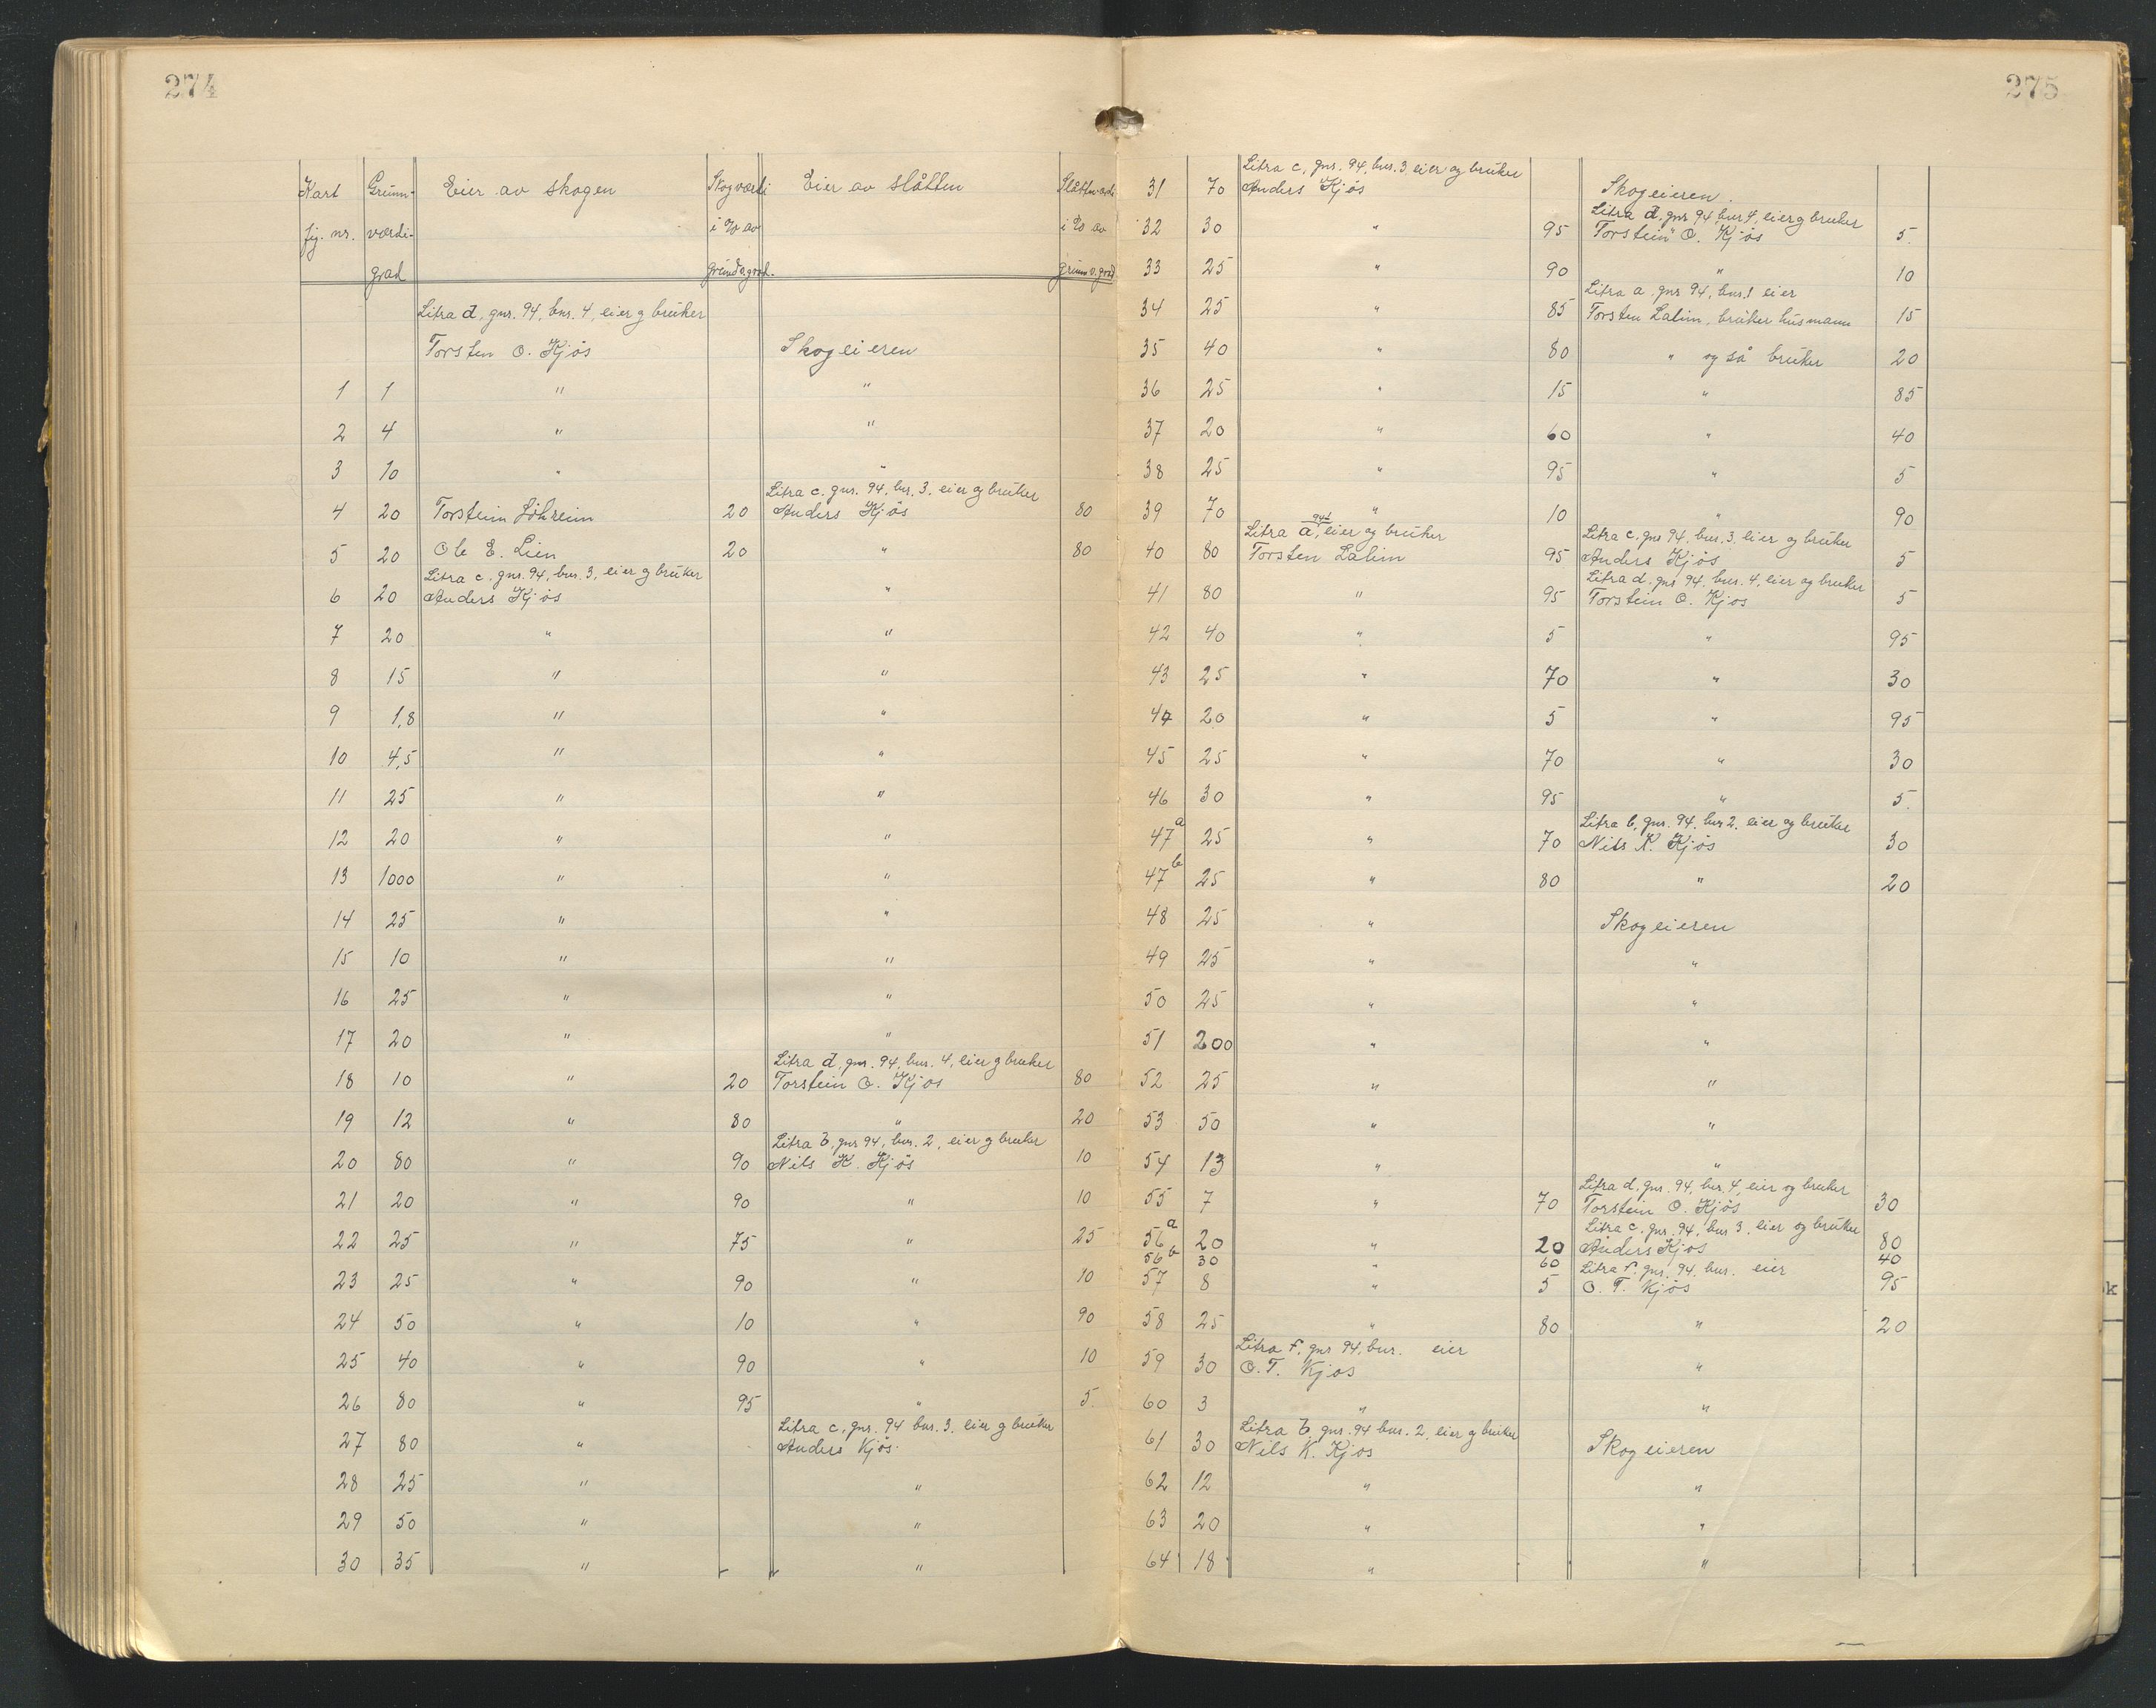 274
Kart Grunn- Eier av skogen Skogværdi Eier av slåtten Slåtteværdi
fig. nr. værdi- i % av i % av
grad grundv.grad. grunnv.grad
Litra d, gnr. 94, bnr. 4, eier g bruker
Torsten O. Kjös Skogeieren
1 1 " "
2 4 " "
3 10 " "
Litra c. gnr. 94, bnr. 3. eier og bruker
4 20 Torstein 20 Anders Kjös 80
5 20 Ole E. Lien 20 " 80
Litra c. gnr. 94, bnr. 3, eier g bruker
6 20 Anders Kjös "
7 20 " "
8 15 " "
9 1,8 " "
10 4,5 " "
11 25 " "
12 20 " "
13 1000 " "
14 25 " "
15 10 " "
16 25 " "
17 20 " "
Litra d, gnr. 94, bnr. 4, eier g bruker
18 10 " 20 Torstein O. Kjos 80
19 12 " 80 " 20
Litra b, gnr 94, bnr. 2, eier g bruker
20 80 " 90 Nils K. Kjös 10
21 20 " 90 " 10
22 25 " 75 " 25
23 25 " 90 " 10
24 50 " 10 " 90
25 40 " 90 " 10
26 80 " 95 " 5.
Litra c, gnr. 94 bnr. 3. eier g bruker
27 80 " Anders Kjös.
28 25 " "
29 50 " "
30 35 " "
275
Litra c, gnr. 94, bnr. 3 eier og bruker
31 70 Anders Kjös Skogeieren.
Litra d. gnr 94 bnr 4, eier g bruker
32 30 " 95 Torstein O. Kjös 5.
33 25 " 90 " 10
Litra a. gnr 94, bnr. 1 eier
34 25 " 85 Torsten Lalim, bruker husmann 15
35 40 " 80 " og så bruker 20
36 25 " 15 " 85
37 20 " 60 " 40
38 25 " 95 " 5
39 70 " 10 " 90
Litra a, 94/1 eier og bruker Litra c, gnr 94. bnr. 3. eier og bruker
40 80 Torsten Lalim 95 Anders Kjös 5
Litra d. gnr 94. bnr. 4, eier og bruker
41 80 " 95 Torstein O. Kjos 5
42 40 " 5 " 95
43 25 " 70 " 30
44 20 " 5 " 95
45 25 " 70 " 30
46 30 " 95 " 5.
Litra b, gnr. 94. bnr 2. eier og bruker
47a 25 " 70 Nils K. Kjös 30
47b 25 " 80 " 20
48 25 " Skogeieren
49 25 " "
50 25 " "
51 200 " "
52 25 " "
53 50 " "
54 13 " "
Litra d. gnr. 94, bnr. 4, eier og bruker
55 7 " 70 Torstein O. Kjös 30
Litra c. gnr. 94, bnr 3. eier og bruker
56a 20 " 20 Anders Kjos 80
56b 30 " 60 Litra f. gnr. 94. bnr. eier 40
57 8 " 5 O. T. Kjös 95
58 25 " 80 " 20
Litra f, gnr 94, bnr. eier
59 30 O. T. Kjos "
60 3 " "
Litra b. gnr. 94 bnr. 2, eier g bruker
61 30 Nils K. Kjos Skogeieren
62 12 " "
63 20 " "
64 18 " "
k